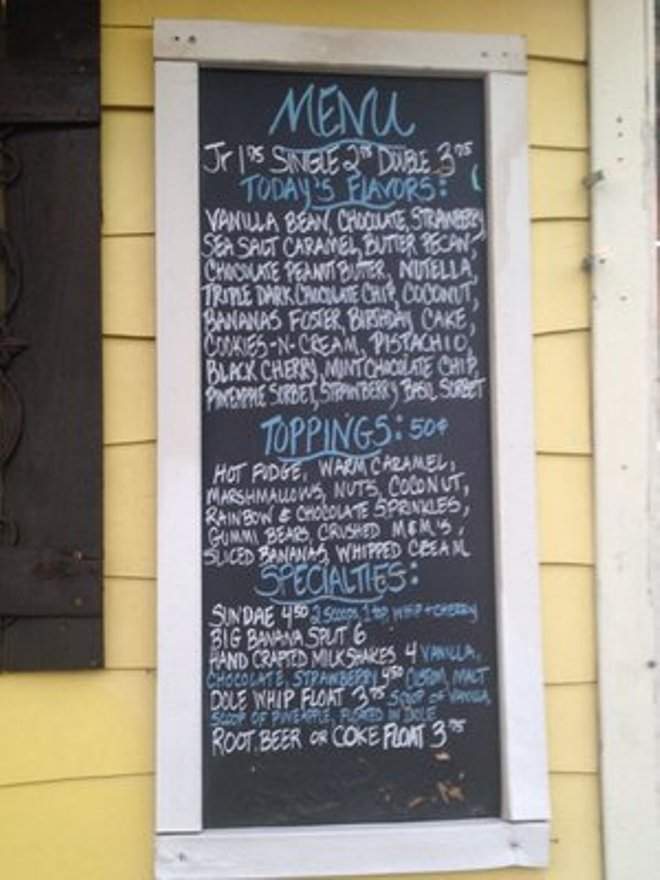 MENU
Jr 1.75 SINGLE 2.75 DOUBLE 3.75
TODAY'S FLAVORS:
VANILLA BEAN, CHOCOLATE, STRAWBERRY,
SEA SALT CARAMEL, BUTTER PECAN,
CHOCOLATE PEANUT BUTTER, NUTELLA,
TRIPLE DARK CHOCOLATE CHIP, COCONUT,
BANANAS FOSTER, BIRTHDAY CAKE,
COOKIES-N-CREAM, PISTACHIO,
BLACK CHERRY, MINT CHOCOLATE CHIP,
PINEAPPLE SORBET, STRAWBERRY BASIL SORBET
TOPPINGS: 50¢
HOT FUDGE, WARM CARAMEL,
MARSHMALLOWS, NUTS, COCONUT,
RAINBOW & CHOCOLATE SPRINKLES,
GUMMI BEARS, CRUSHED M&M'S,
SLICED BANANAS, WHIPPED CREAM
SPECIALTIES:
SUNDAE 4.50 2 SCOOPS, 1 top, WHIP + CHERRY
BIG BANANA SPLIT 6
HAND CRAFTED MILKSHAKES 4 VANILLA,
CHOCOLATE, STRAWBERRY 4.50 CUSTOM, MALT
DOLE WHIP FLOAT 3.75 SCOOP OF VANILLA,
SCOOP OF PINEAPPLE, FLOATED IN DOLE
ROOT BEER OR COKE FLOAT 3.75